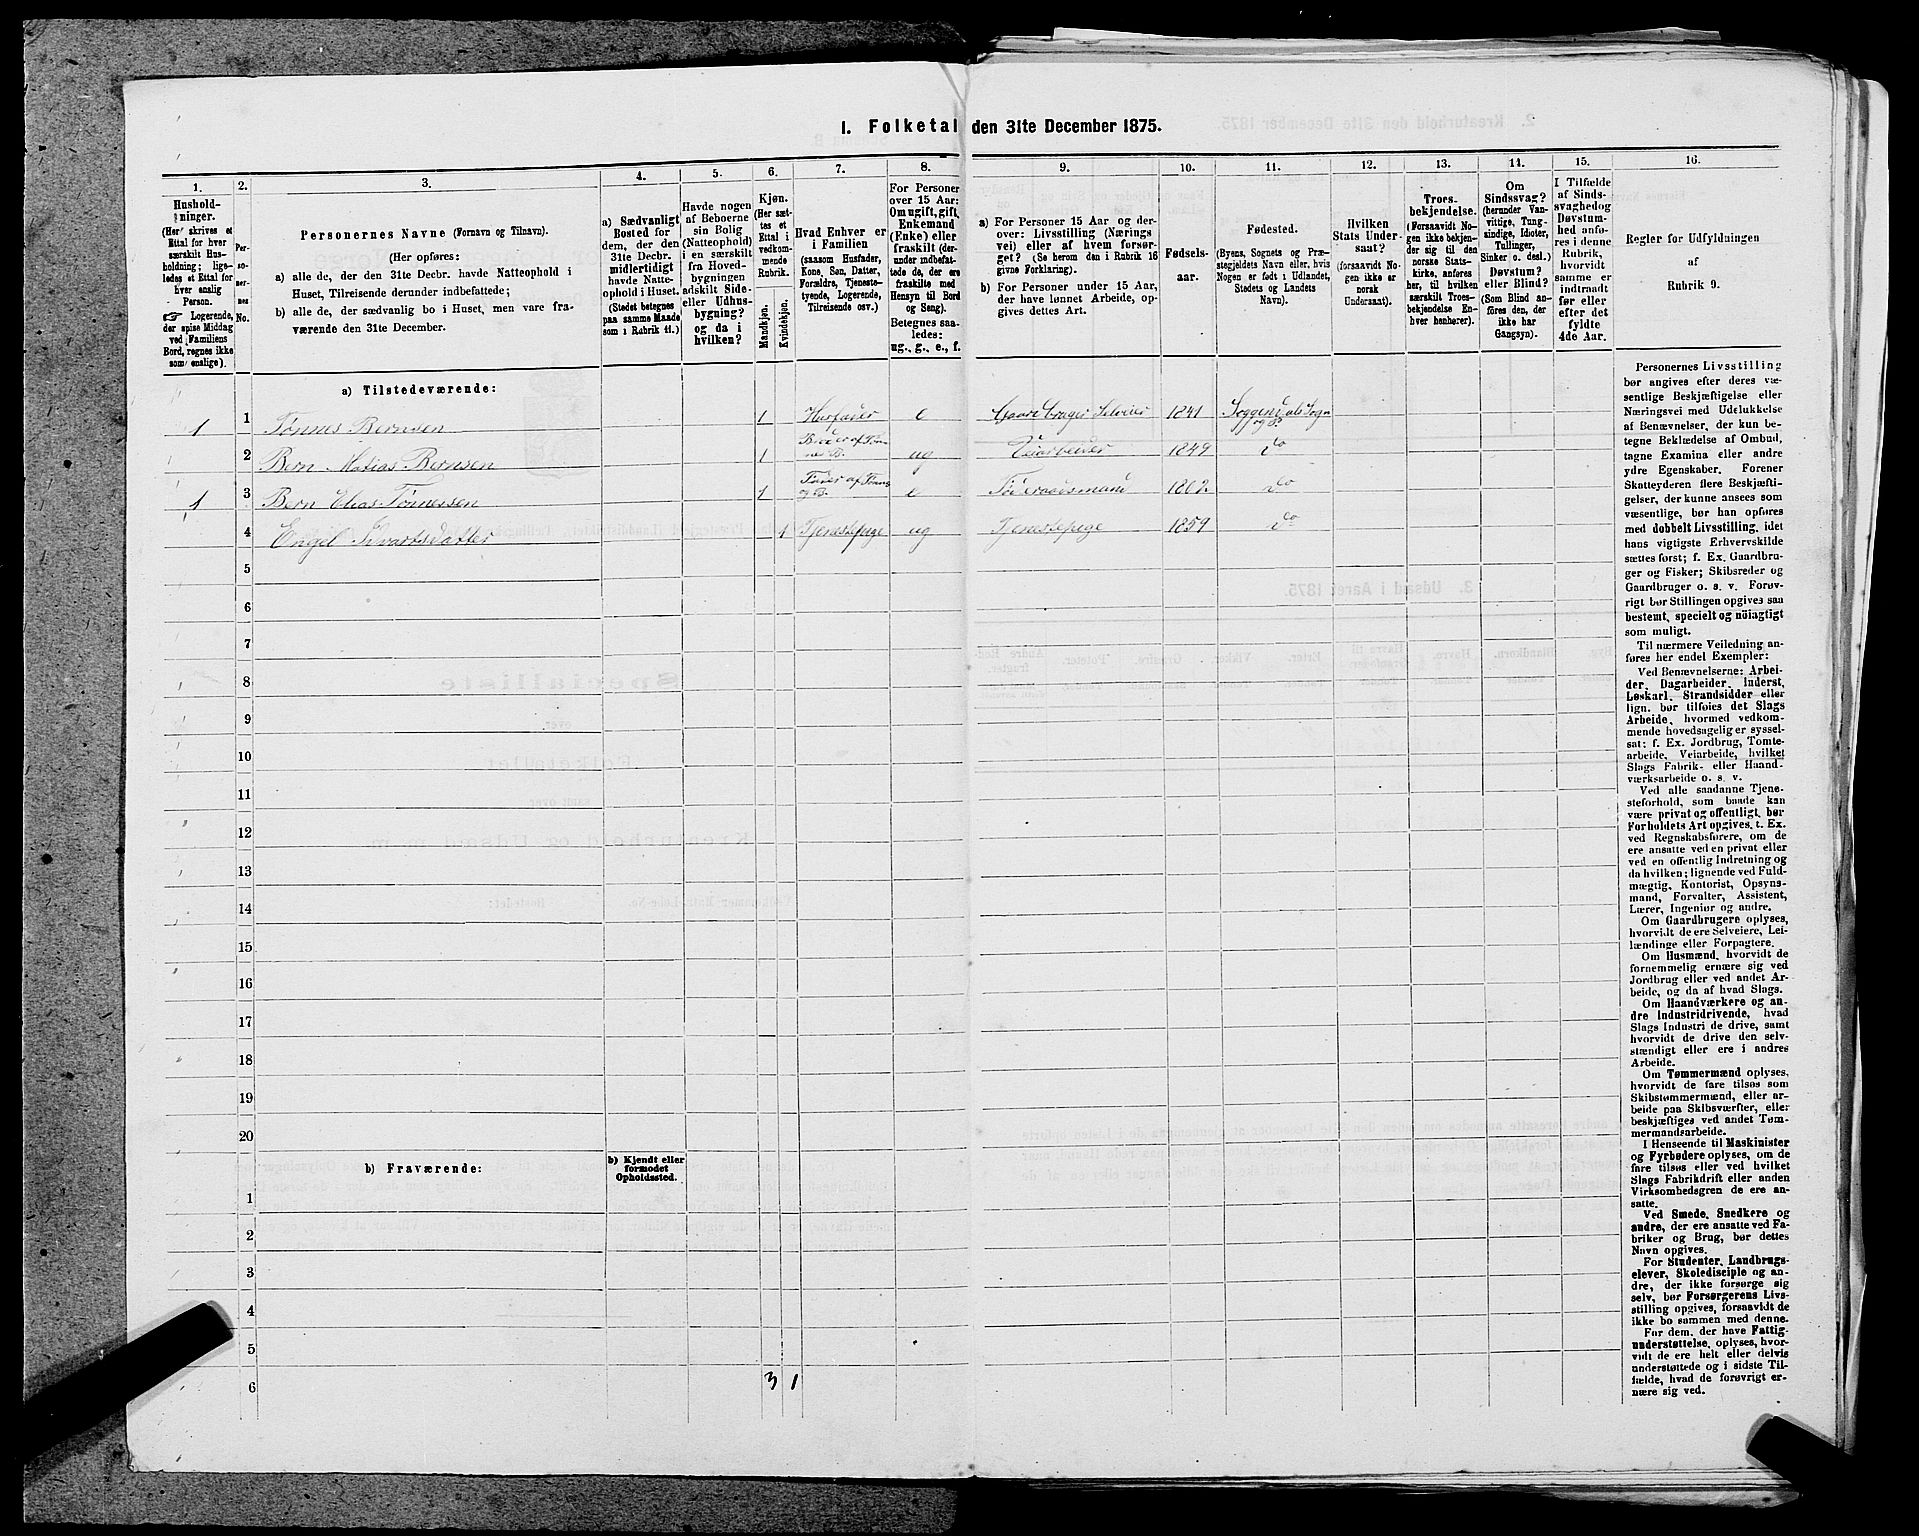 1. Folketal den 31te December 1875.
1.
Hushold-
ninger.
(Her skrives et
Ettal for hver
særskilt Hus-
holdning; lige-
ledes et Ettal for
hver enslig
Person.
☞ Logerende,
der spise Middag
ved Familiens
Bord, regnes ikke
som enslige).
2.
Per-
so-
ner-
nes
No.
3.
Personernes Navne (Fornavn og Tilnavn).
(Her opføres:
a) alle de, der den 31te Decbr. havde Natteophold i
Huset, Tilreisende derunder indbefattede;
b) alle de, der sædvanlig bo i Huset, men vare fra-
værende den 31te December.
4.
a) Sædvanligt
Bosted for
dem, der den
31te Decbr.
midlertidigt
havde Natte-
ophold i Huset.
(Stedet betegnes
paa samme Maade
som i Rubrik 11.)
5.
Havde nogen
af Beboerne
sin Bolig
(Natteophold)
i en særskilt
fra Hoved-
bygningen
adskilt Side-
eller Udhus-
bygning?
og da i
hvilken?
6.
Kjøn.
(Her sæt-
tes et
Ettal i
vedkom-
mende
Rubrik.
Mandkjøn.
Kvindekjøn.
7.
Hvad Enhver er
i Familien
(saasom Husfader,
Kone, Søn, Datter,
Forældre, Tjeneste-
tyende, Logerende,
Tilreisende osv.)
8.
For Personer
over 15 Aar:
Om ugift, gift,
Enkemand
(Enke) eller
fraskilt (der-
under indbefat-
tede de, der ere
fraskilte med
Hensyn til Bord
og Seng).
Betegnes saa-
ledes:
ug., g., e., f.
9.
a) For Personer 15 Aar og der-
over: Livsstilling (Nærings
vei) eller af hvem forsør-
get? (Se herom den i Rubrik 16
givne Forklaring).
b) For Personer under 15 Aar,
der have lønnet Arbeide, op-
gives dettes Art.
10.
Fødsels-
aar.
11.
Fødested.
(Byens, Sognets og Præ-
stegjeldets Navn eller, hvis
Nogen er født i Udlandet,
Stedets og Landets
Navn).
12.
Hvilken
Stats Under-
saat?
(forsaavidt No-
gen ikke er
norsk
Undersaat).
13.
Troes-
bekjendelse.
(Forsaavidt No-
gen ikke bekjen-
der sig til den
norske Stats-
kirke, anføres
her, til hvilken
særskilt Troes-
bekjendelse En-
hver henhører).
14.
Om
Sindssvag?
(herunder Van-
vittige, Tung-
sindige, Idioter,
Tullinger,
Sinker o. desl.)
Døvstum?
eller Blind?
(Som Blind an-
føres den, der
ikke har
Gangsyn).
15.
I Tilfælde
af Sinds-
svaghed og
Døvstum-
hed anfø-
res i denne
Rubrik,
hvorvidt
samme er
indtraadt
før eller
efter det
fyldte
4de Aar.
16.
Regler for Udfyldningen
af
Rubrik 9.
a) Tilstedeværende:
1 1 Tønnes Bernsen 1 Husfader e Gaardbruger Selveier 1841 Soggendals Sogn
og P.
2 Bern Matias Bernsen 1 Broder af Tøn-
nes B. ug Veiarbeider 1849 do
1 3 Bern Elias Tønnesen 1 Fader af Tønnes
og B. e Föderaadsmand 1802 do
4 Engel Sivartsdatter 1 Tjenestepige ug Tjenestepige 1859 do
5
6
7
8
9
10
11
12
13
14
15
16
17
18
19
20
b) Fraværende:
b) Kjendt eller
formodet
Opholdssted.
1
2
3
4
5
6
3 1
Personernes Livsstilling
bør angives efter deres væ-
sentlige Beskjæftigelse eller
Næringsvei med Udelukkelse
af Benævnelser, der kun be-
tegne Beklædelse af Ombud,
tagne Examina eller andre
ydre Egenskaber. Forener
Skatteyderen flere Beskjæfti-
gelser, der kunne ansees som
væsentlige, bør han opføres
med dobbelt Livsstilling, idet
hans vigtigste Erhvervskilde
sættes først; f. Ex. Gaardbru-
ger og Fisker; Skibsreder og
Gaardbruger o. s. v. Forøv-
rigt bør Stillingen opgives saa
bestemt, specielt og nöiagtigt
som muligt.
Til nærmere Veiledning an-
føres her endel Exempler:
Ved Benævnelserne: Arbei-
der, Dagarbeider, Inderst,
Løskarl, Strandsidder eller
lign. bør tilføies det Slags
Arbeide, hvormed vedkom-
mende hovedsagelig er syssel-
sat; f. Ex. Jordbrug, Tomte-
arbeide, Veiarbeide, hvilket
Slags Fabrik- eller Haand-
værksarbeide o. s. v.
Ved alle saadanne Tjene-
steforhold, som baade kan
være privat og offentligt, bør
Forholdets Art opgives, t. Ex.
ved Regnskabsførere, om de
ere ansatte ved en privat eller
ved en offentlig Indretning og
da hvilken; lignende ved Fuld-
mægtig, Kontorist, Opsyns-
mand, Forvalter, Assistent,
Lærer, Ingeniør og andre.
Om Gaardbrugere oplyses,
hvorvidt de ere Selveiere, Lei-
lændinge eller Forpagtere.
Om Husmænd, hvorvidt de
fornemmelig ernære sig ved
Jordbrug eller ved andet Ar-
beide, og da af hvad Slags.
Om Haandværkere og an-
dre Industridrivende, hvad
Slags Industri de drive, samt
hvorvidt de drive den selv-
stændigt eller ere i andres
Arbeide.
Om Tømmermænd oplyses,
hvorvidt de fare tilsøs som
Skibstømmermænd, eller ar-
beide paa Skibsværfter, eller
beskjæftiges ved andet Tøm-
mermandsarbeide.
I Henseende til Maskinister
og Fyrbødere oplyses, om de
fare tilsøs eller ved hvilket
Slags Fabrikdrift eller anden
Virksomhedsgren de ere an-
satte.
Ved Smede, Snedkere og
andre, der ere ansatte ved Fa-
briker og Brug, bør dettes
Navn opgives.
For Studenter, Landbrugs-
elever, Skoledisciple og an-
dre, der ikke forsørge sig
selv, bør Forsørgerens Livs-
stilling opgives, forsaavidt de
ikke bo sammen med denne.
For dem, der have Fattig-
understøttelse, oplyses, hvor-
vidt de ere helt eller delvis
understøttede og i sidste Til-
fælde, hvad de forøvrigt er-
nære sig ved.